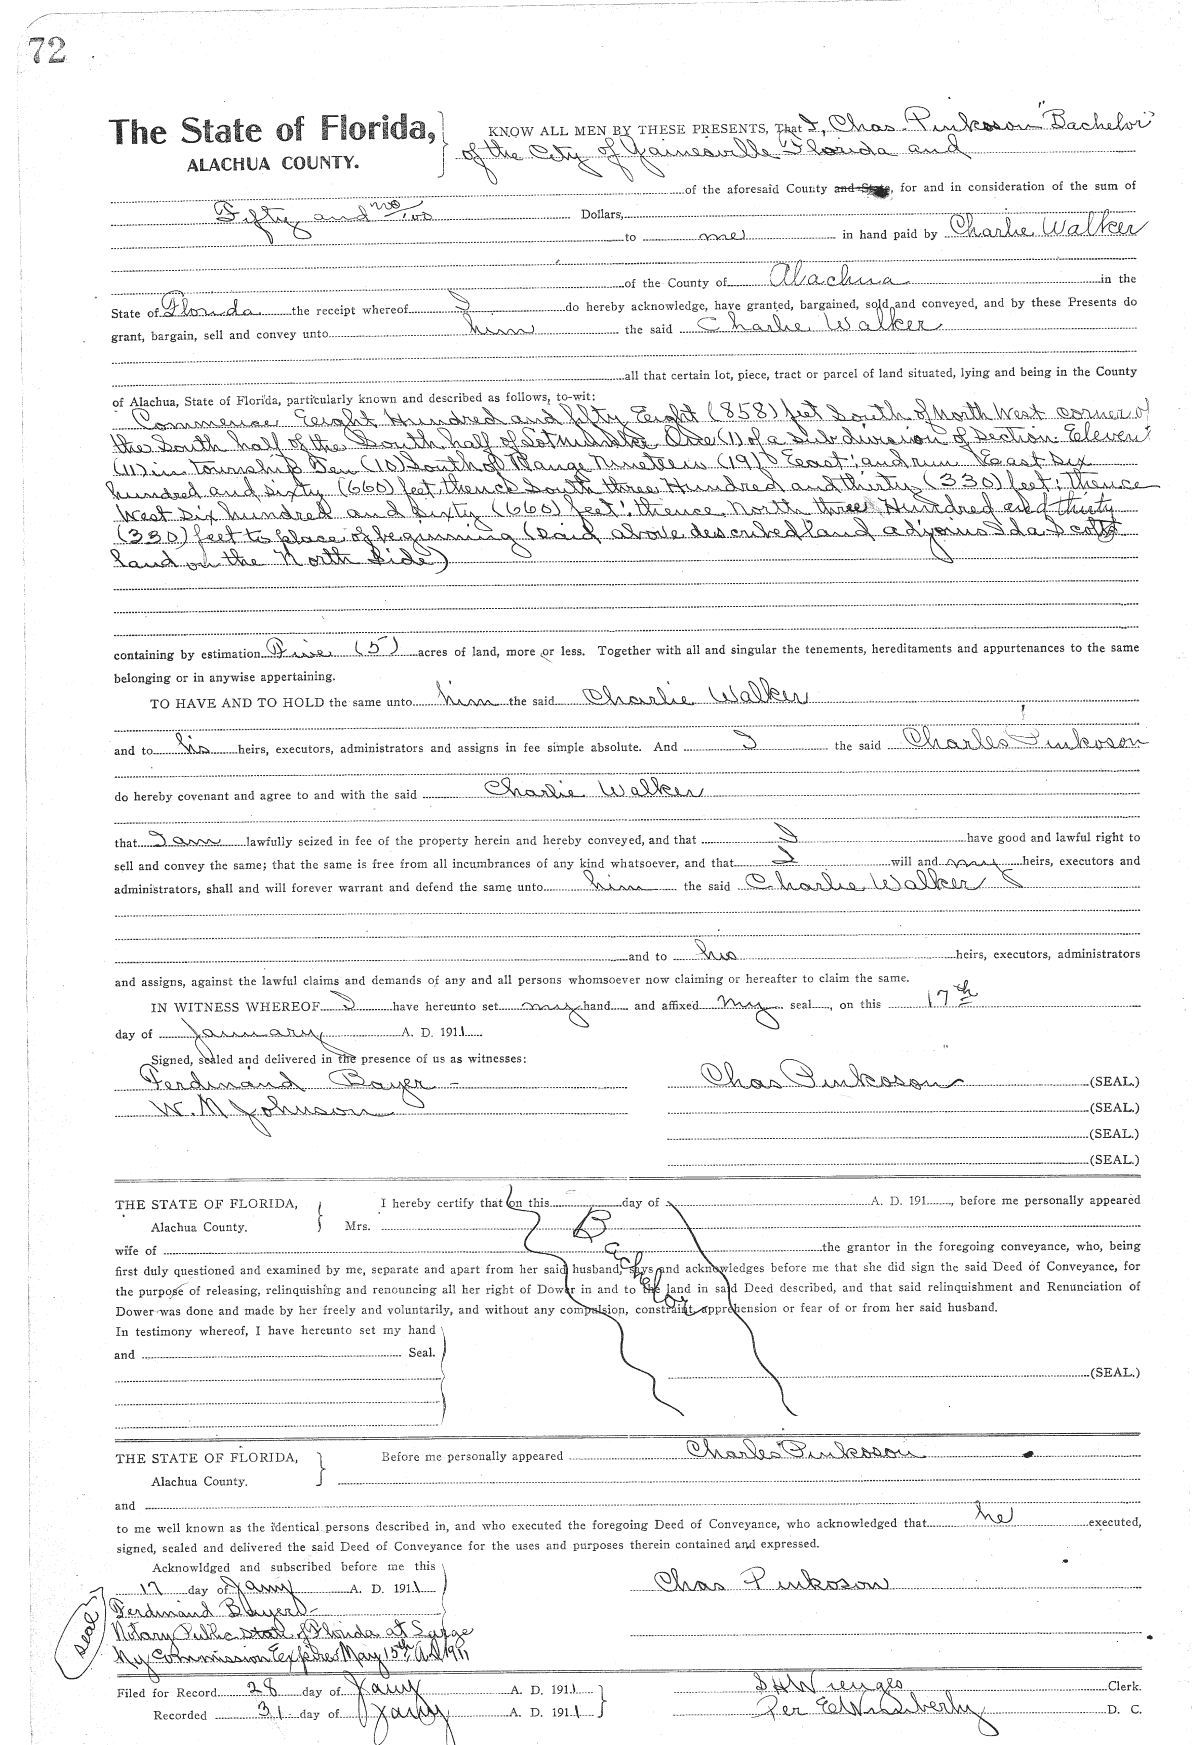 72
The State of Florida, KNOW ALL MEN BY THESE PRESENTS, That I, Chas. Pinkoson "Bachelor"
ALACHUA COUNTY. of the City of Gainesville Florida and
of the aforesaid County and State, for and in consideration of the sum of
Fifty and no/100 Dollars,
to me in hand paid by Charlie Walker
of the County of Alachua in the
State of Florida the receipt whereof I do hereby acknowledge, have granted, bargained, sold and conveyed, and by these Presents do
grant, bargain, sell and convey unto him the said Charlie Walker
all that certain lot, piece, tract or parcel of land situated, lying and being in the County
of Alachua, State of Florida, particularly known and described as follows, to-wit:
Commence Eight Hundred and fifty Eight (858) feet South of North West corner of
the South half of the South half of Lot number One (1) of a subdivision of Section Eleven
(11) in township Ten (10) South of Range Nineteen (19) East; and run East Six
hundred and sixty (660) feet thence South three Hundred and thirty (330) feet; thence
West Six hundred and sixty (660) feet; thence North three Hundred and thirty
(330) feet to place of beginning (Said above described land adjoins Ida Scotts
land on the North Side)
containing by estimation Five (5) acres of land, more or less. Together with all and singular the tenements, hereditaments and appurtenances to the same
belonging or in anywise appertaining.
TO HAVE AND TO HOLD the same unto him the said Charlie Walker
and to his heirs, executors, administrators and assigns in fee simple absolute. And I the said Charles Pinkoson
do hereby covenant and agree to and with the said Charlie Walker
that I am lawfully seized in fee of the property herein and hereby conveyed, and that I have good and lawful right to
sell and convey the same; that the same is free from all incumbrances of any kind whatsoever, and that I will and my heirs, executors and
administrators, shall and will forever warrant and defend the same unto him the said Charlie Walker
and to his heirs, executors, administrators
and assigns, against the lawful claims and demands of any and all persons whomsoever now claiming or hereafter to claim the same.
IN WITNESS WHEREOF I have hereunto set my hand and affixed my seal, on this 17th
day of January A. D. 1911
Signed, sealed and delivered in the presence of us as witnesses:
Ferdinand Bayer Chas Pinkoson (SEAL.)
W. M Johnson (SEAL.)
(SEAL.)
(SEAL.)
THE STATE OF FLORIDA, I hereby certify that on this day of A. D. 191, before me personally appeared
Alachua County. Mrs.
Bachelor
wife of the grantor in the foregoing conveyance, who, being
first duly questioned and examined by me, separate and apart from her said husband, says and acknowledges before me that she did sign the said Deed of Conveyance, for
the purpose of releasing, relinquishing and renouncing all her right of Dower in and to the land in said Deed described, and that said relinquishment and Renunciation of
Dower was done and made by her freely and voluntarily, and without any compulsion, constraint, apprehension or fear of or from her said husband.
In testimony whereof, I have hereunto set my hand
and Seal.
(SEAL.)
THE STATE OF FLORIDA, Before me personally appeared Charles Pinkoson
Alachua County.
and
to me well known as the identical persons described in, and who executed the foregoing Deed of Conveyance, who acknowledged that he executed,
signed, sealed and delivered the said Deed of Conveyance for the uses and purposes therein contained and expressed.
Acknowldged and subscribed before me this
17 day of Jany A. D. 1911 Chas Pinkoson
Seal
Ferdinand Bayer
Notary Public State of Florida at Large
My Commission Expires May 15th A.D 1911
Filed for Record 28 day of Jany A. D. 1911 S H Wienges Clerk.
Recorded 31 day of Jany A. D. 1911 Per E Wimberly D. C.